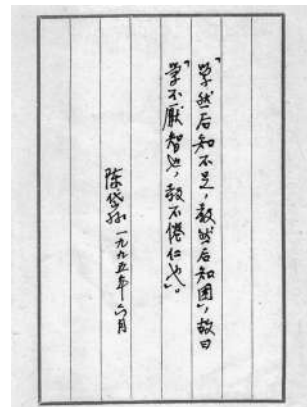 「学然后知不足，教然后知困」，故曰
「学不厭智也，教不倦仁也」。
陈岱孙 一九九五年六月